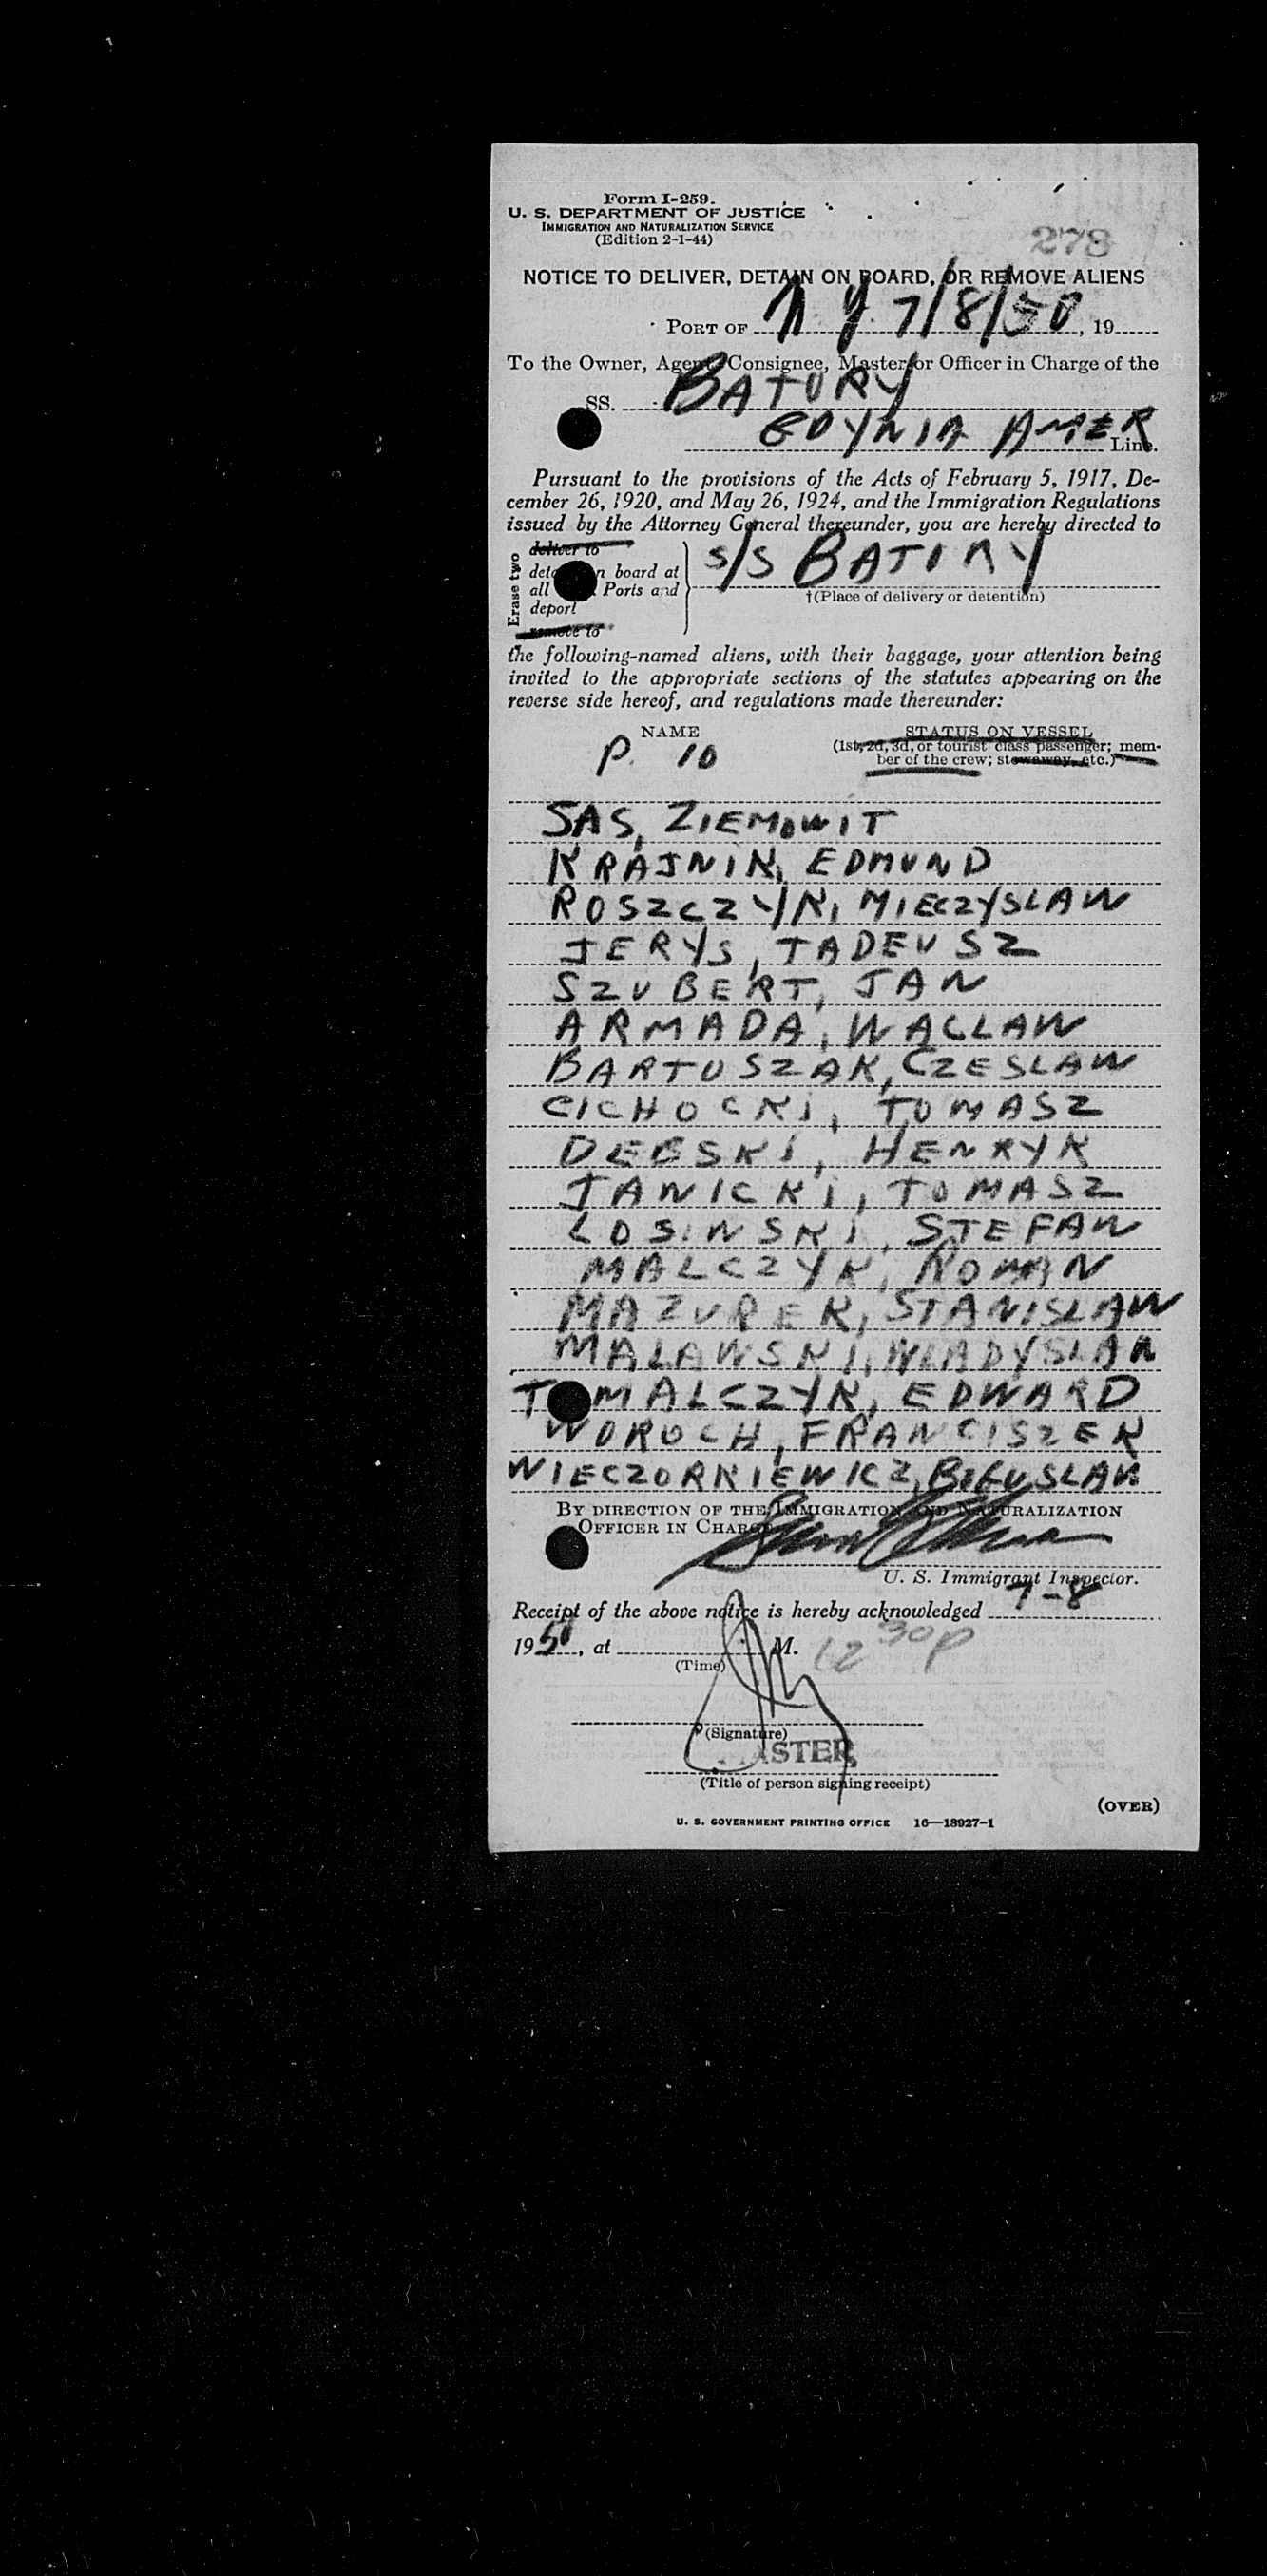 Form I-259.
U. S. DEPARTMENT OF JUSTICE
IMMIGRATION AND NATURALIZATION SERVICE
(Edition 2-1-44)
278
NOTICE TO DELIVER, DETAIN ON BOARD, OR REMOVE ALIENS
PORT OF N Y 7/8/50, 19
To the Owner, Agent, Consignee, Master or Officer in Charge of the
SS. BATORY
GDYNIA AMER Line.
Pursuant to the provisions of the Acts of February 5, 1917, De-
cember 26, 1920, and May 26, 1924, and the Immigration Regulations
issued by the Attorney General thereunder, you are hereby directed to
Erase two
deliver to
detain on board at
all Ports and
deport
remove to
S/S BATORY
†(Place of delivery or detention)
the following-named aliens, with their baggage, your attention being
invited to the appropriate sections of the statutes appearing on the
reverse side hereof, and regulations made thereunder:
NAME STATUS ON VESSEL
P. 10 (1st, 2d, 3d, or tourist class passenger; mem-
ber of the crew; stowaway, etc.)
SAS, ZIEMOWIT
KRAJNIK, EDMUND
ROSZCZYK, MIECZYSLAW
JERYS, TADEUSZ
SZUBERT, JAN
ARMADA, WACLAW
BARTOSZAK, CZESLAW
CICHOCKI, TOMASZ
DEBSKI, HENRYK
JANICKI, TOMASZ
LOSINSKI, STEFAN
MALCZYK, ROMAN
MAZUREK, STANISLAW
MALAWSKI, WLADYSLAW
TOMALCZYK, EDWARD
WOROCH, FRANCISZEK
WIECZORKIEWICZ, BOGUSLAW
BY DIRECTION OF THE IMMIGRATION AND NATURALIZATION
OFFICER IN CHARGE
U. S. Immigrant Inspector.
Receipt of the above notice is hereby acknowledged 7-8
1950, at M. 12 30 P
(Time)
(Signature)
MASTER
(Title of person signing receipt)
(OVER)
U. S. GOVERNMENT PRINTING OFFICE 16—18927-1